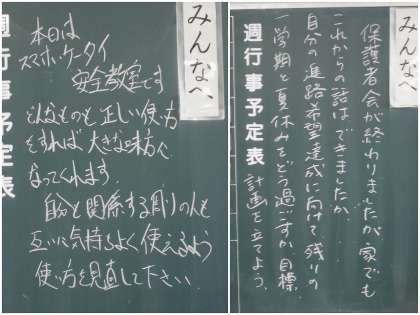 みんなへ
週行事予定表
本日は
スマホ・ケータイ
安全教室です
どんなものも正しい使い方
をすれば大きな味方に
なってくれます。
自分と関係する周りの人も
互いに気持ちよく使えるよう
使い方を見直して下さい。
みんなへ
週行事予定表
保護者会が終わりましたが、家でも
これからの話はできましたか。
自分の進路希望達成に向けて残りの
一学期と夏休みをどう過ごすか目標、
計画を立てよう。